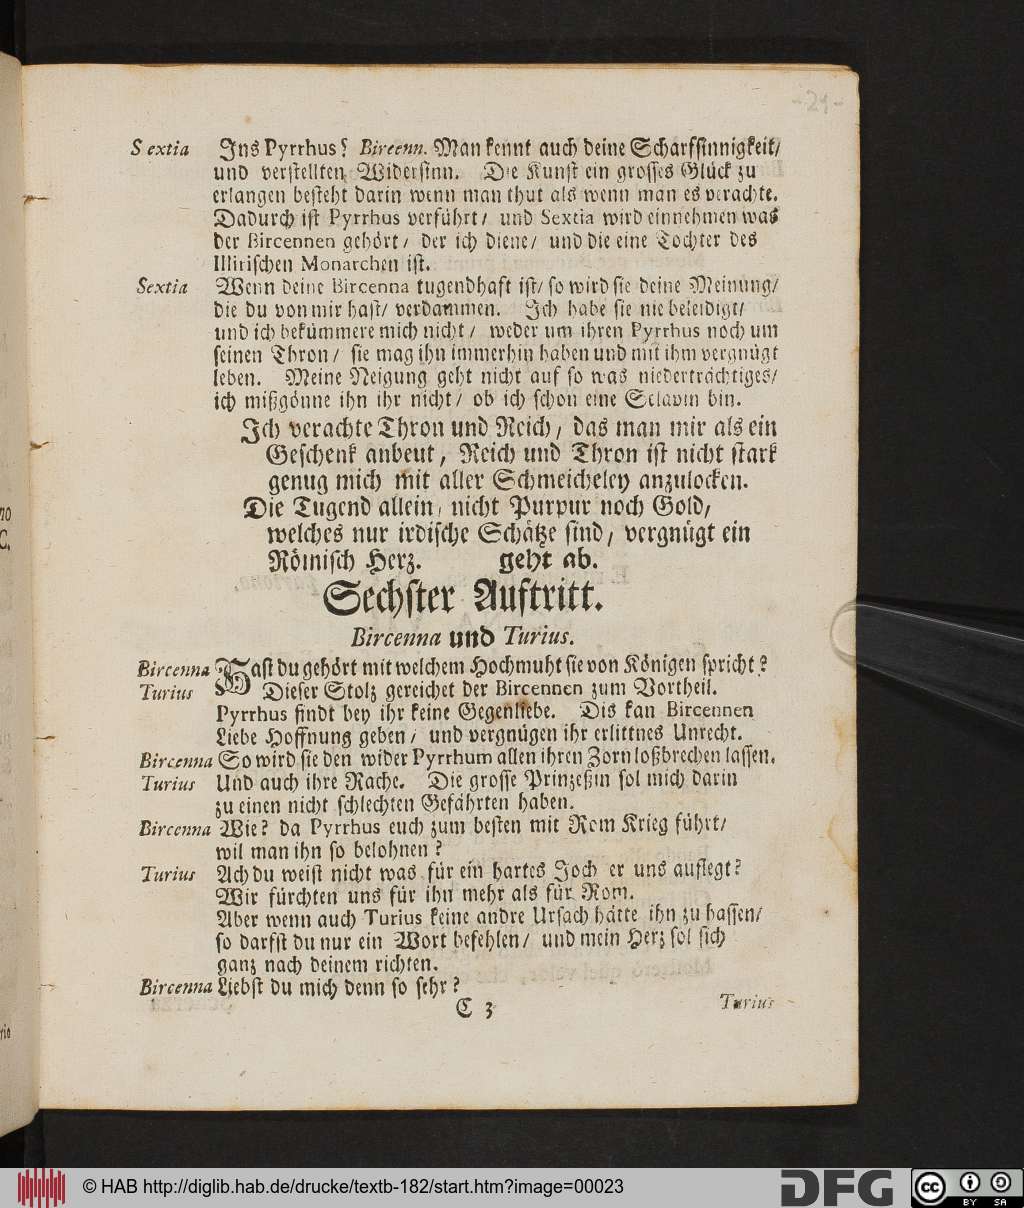 -21-
Sextia Ins Pyrrhus? Bircenn. Man kennt auch deine Scharfsinnigkeit/
und verstellten Widersinn. Die Kunst ein grosses Glück zu
erlangen besteht darin wenn man thut als wenn man es verachte.
Dadurch ist Pyrrhus verführt/ und Sextia wird einnehmen was
der Bircennen gehört/ der ich diene/ und die eine Tochter des
Illirischen Monarchen ist.
Sextia Wenn deine Bircenna tugendhaft ist/ so wird sie deine Meinung/
die du von mir hast/ verdammen. Ich habe sie nie beleidigt/
und ich bekümmere mich nicht/ weder um ihren Pyrrhus noch um
seinen Thron/ sie mag ihn immerhin haben und mit ihm vergnügt
leben. Meine Neigung geht nicht auf so was niederträchtiges/
ich mißgönne ihn ihr nicht/ ob ich schon eine Sclavin bin.
Ich verachte Thron und Reich, das man mir als ein
Geschenk anbeut, Reich und Thron ist nicht stark
genug mich mit aller Schmeicheley anzulocken.
Die Tugend allein, nicht Purpur noch Gold,
welches nur irdische Schätze sind, vergnügt ein
Römisch Herz. geht ab.
Sechster Auftritt.
Bircenna und Turius.
Bircenna Hast du gehört mit welchem Hochmuht sie von Königen spricht?
Turius Dieser Stolz gereichet der Bircennen zum Vortheil.
Pyrrhus findt bey ihr keine Gegenliebe. Dis kan Bircennen
Liebe Hoffnung geben/ und vergnügen ihr erlittnes Unrecht.
Bircenna So wird sie den wider Pyrrhum allen ihren Zorn loßbrechen lassen.
Turius Und auch ihre Rache. Die grosse Prinzeßin sol mich darin
zu einen nicht schlechten Gefährten haben.
Bircenna Wie? da Pyrrhus euch zum besten mit Rom Krieg führt/
wil man ihn so belohnen?
Turius Ach du weist nicht was für ein hartes Joch er uns auflegt?
Wir fürchten uns für ihn mehr als für Rom.
Aber wenn auch Turius keine andre Ursach hätte ihn zu hassen/
so darfst du nur ein Wort befehlen/ und mein Herz sol sich
ganz nach deinem richten.
Bircenna Liebst du mich denn so sehr?
C 3 Turius
© HAB http://diglib.hab.de/drucke/textb-182/start.htm?image=00023
DFG
cc BY SA